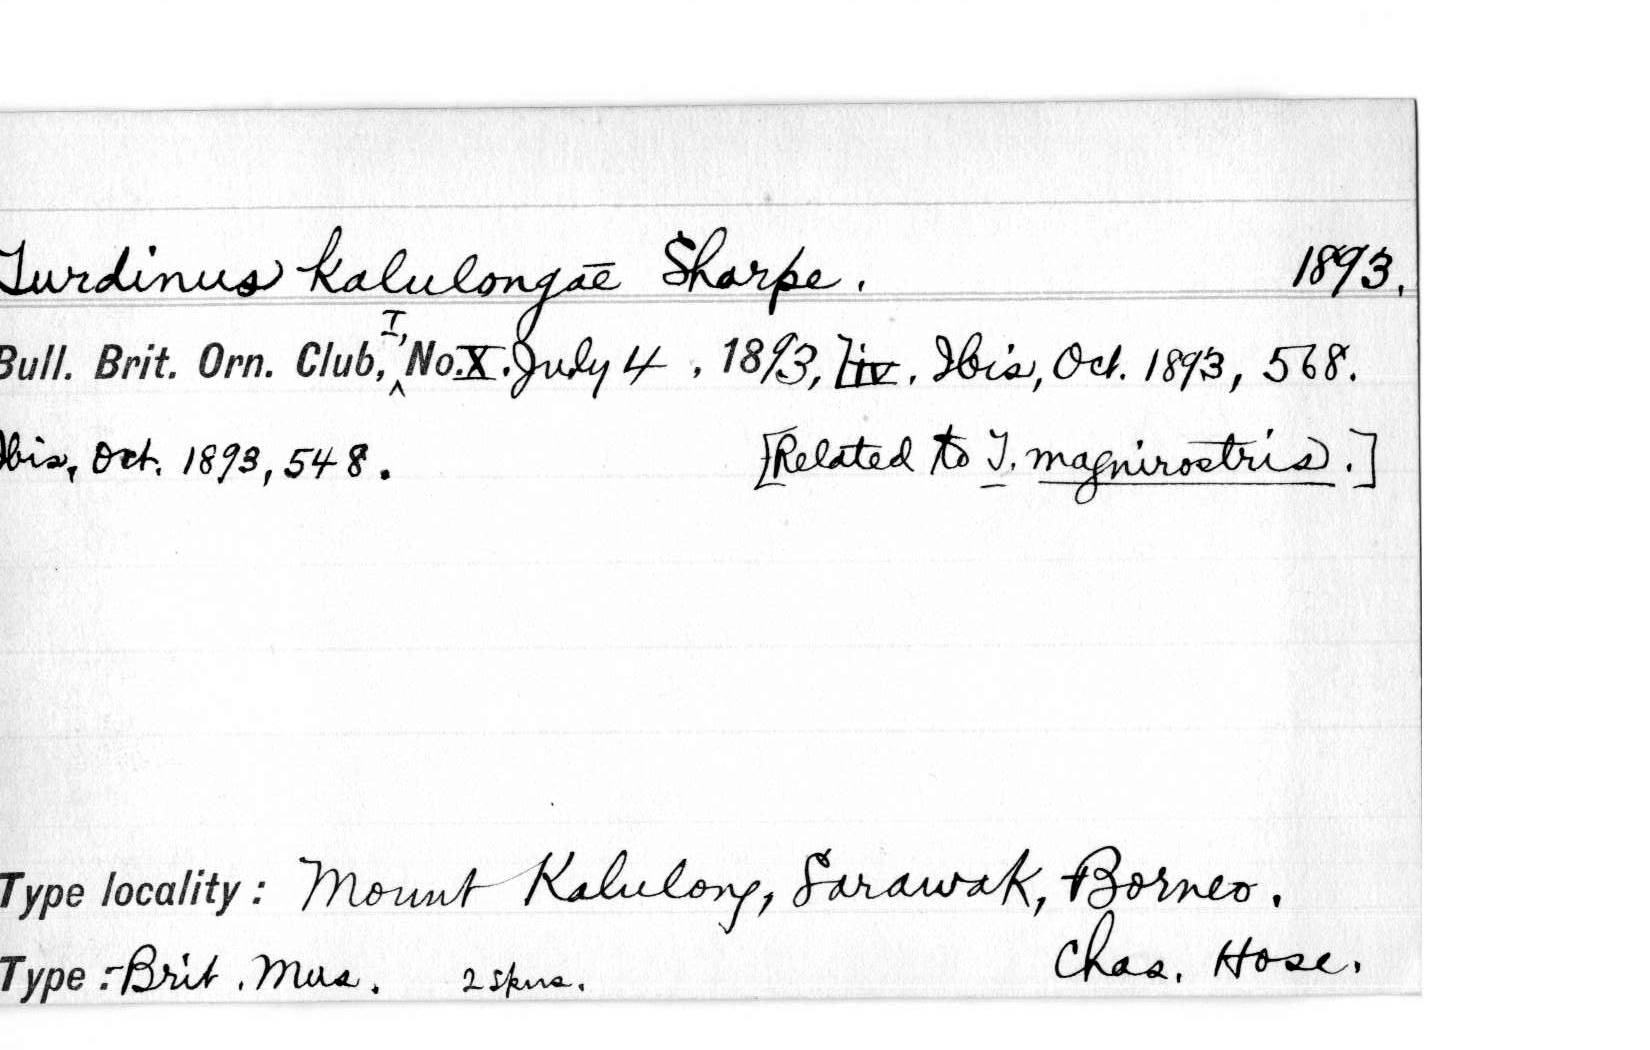 Turdinus kalulongæ Sharpe. 1893.
Bull. Brit. Orn. Club, I, No. X. July 4, 1893, liv. Ibis, Oct. 1893, 568.
Ibis, Oct. 1893, 548. [Related to T. magnirostris.]
Type locality: Mount Kalulong, Sarawak, Borneo.
Chas. Hose.
Type :- Brit. Mus. 2 spns.